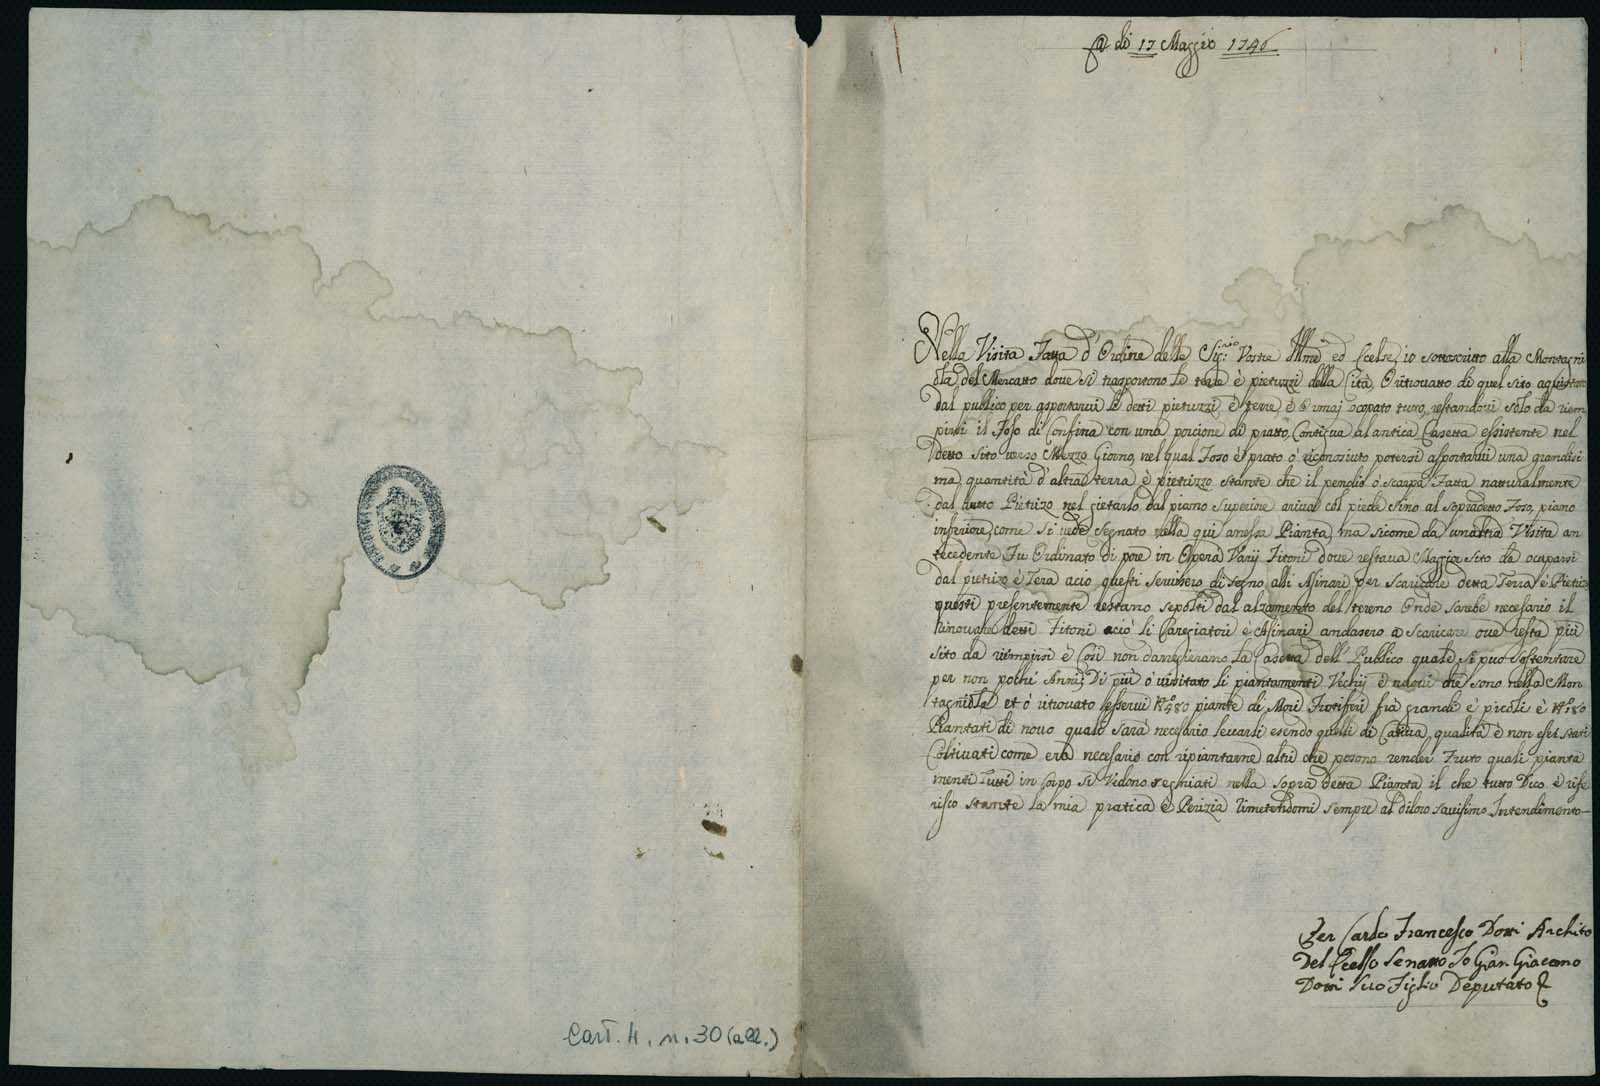 Cart. 4, n. 30 (all.)
@ di 17 Maggio 1746
Nella Visita Fatta d'Ordine delle Sig:rie Vostre Illme ed Ecelse, io sottoscritto alla Montagni
ola del Mercatto dove si trasportono le terre è pietuzzi della Cità, ò ritrovatto di quel sito aquistato
dal publico per asportarvi le detti pietuzzi, è terre, è ormaj ocopato tutto, restandovi solo da riem
pirsi il Foso di Confina con una porcione di pratto, Contigua al antica Casetta essistente nel
detto sito verso Mezzo Giorno, nel qual Foso è prato ò riconosiuto potersi asportarvi una grandisi
ma quantità d'altra terra, è pietuzzo stante che il pendio ò scarpa Fatta natturalmente
dal detto Pietuzo nel gietarlo dal piano superiore ariva col piede sino al sopradetto Foso, piano
inferiore, come si vede segnato nella qui anessa Pianta, ma sicome da un'altra Visita an
tecedente Fu Ordinato di pore in Opera Varij Fitoni dove restava Maggior sito da ocuparsi
dal pietuzo è Tera acio questi servissero di segno alli Asinari per scaricare detta Terra è Pietuzo
questi presentemente restano sepolti dal alzamento del tereno Onde sarebe necesario il
Rinovare detti Fitoni aciò li Caregiatori è Asinari andasero a scaricare ove resta più
sito da riempirsi è Così non danegierano la Casetta dell'Publico quale si puo sostentare
per non pochi Anni; Di più ò visitato li piantamenti Vechij è nuovi che sono nella Mon
tagniola et ò ritrovato esservi No 480 piante di Mori Frotiferi fra grandi è picoli è No 180
Piantati di novo quali sarà necesario levarli esendo quelli di Cativa qualità è non eser stati
Coltivati come era necesario con ripiantarne altri che posono render Fruto quali pianta
menti Tutti in Corpo si Vedono segniati nella sopra detta Pianta il che tutto Dico è rife
risco stante la mia pratica è Perizia rimetendomi sempre al diloro savissimo Intendimento
Per Carlo Francesco Dotti Archito
Del Ecelso Senatto Io Gian Giacomo
Dotti suo Figlio Deputato